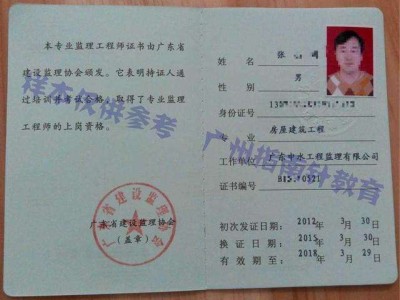 本专业监理工程师证书由广东省
建设监理协会颁发。它表明持证人通
过培训并考试合格，取得了专业监理
工程师的上岗资格。
样本仅供参考
广东省建设监理协会
（盖章）
广东省建设监理协会
姓名 张
性别 男
身份证号
专业 房屋建筑工程
工作单位 广东中水工程监理有限公司
证书编号
初次发证日期： 2012 年 3 月 30 日
换证日期： 2015 年 3 月 30 日
有效期至： 2018 年 3 月 29 日
广州指南针教育